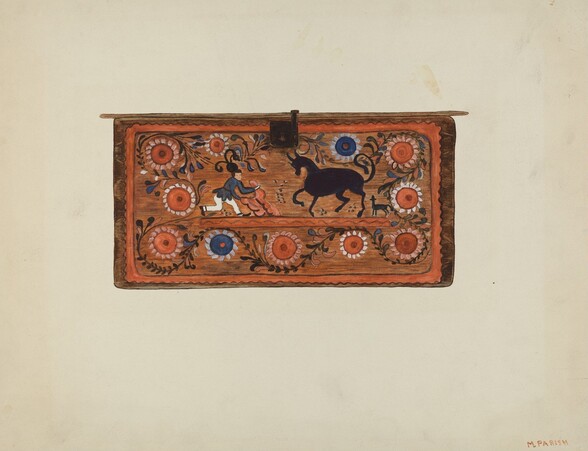 M. PARISH